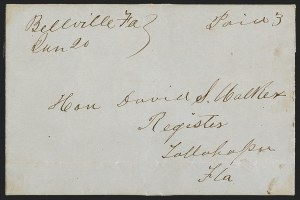 Bellville Fa
Paid 3
Jan 20
Hon David S. Walker
Register
Tallahassee
Fla